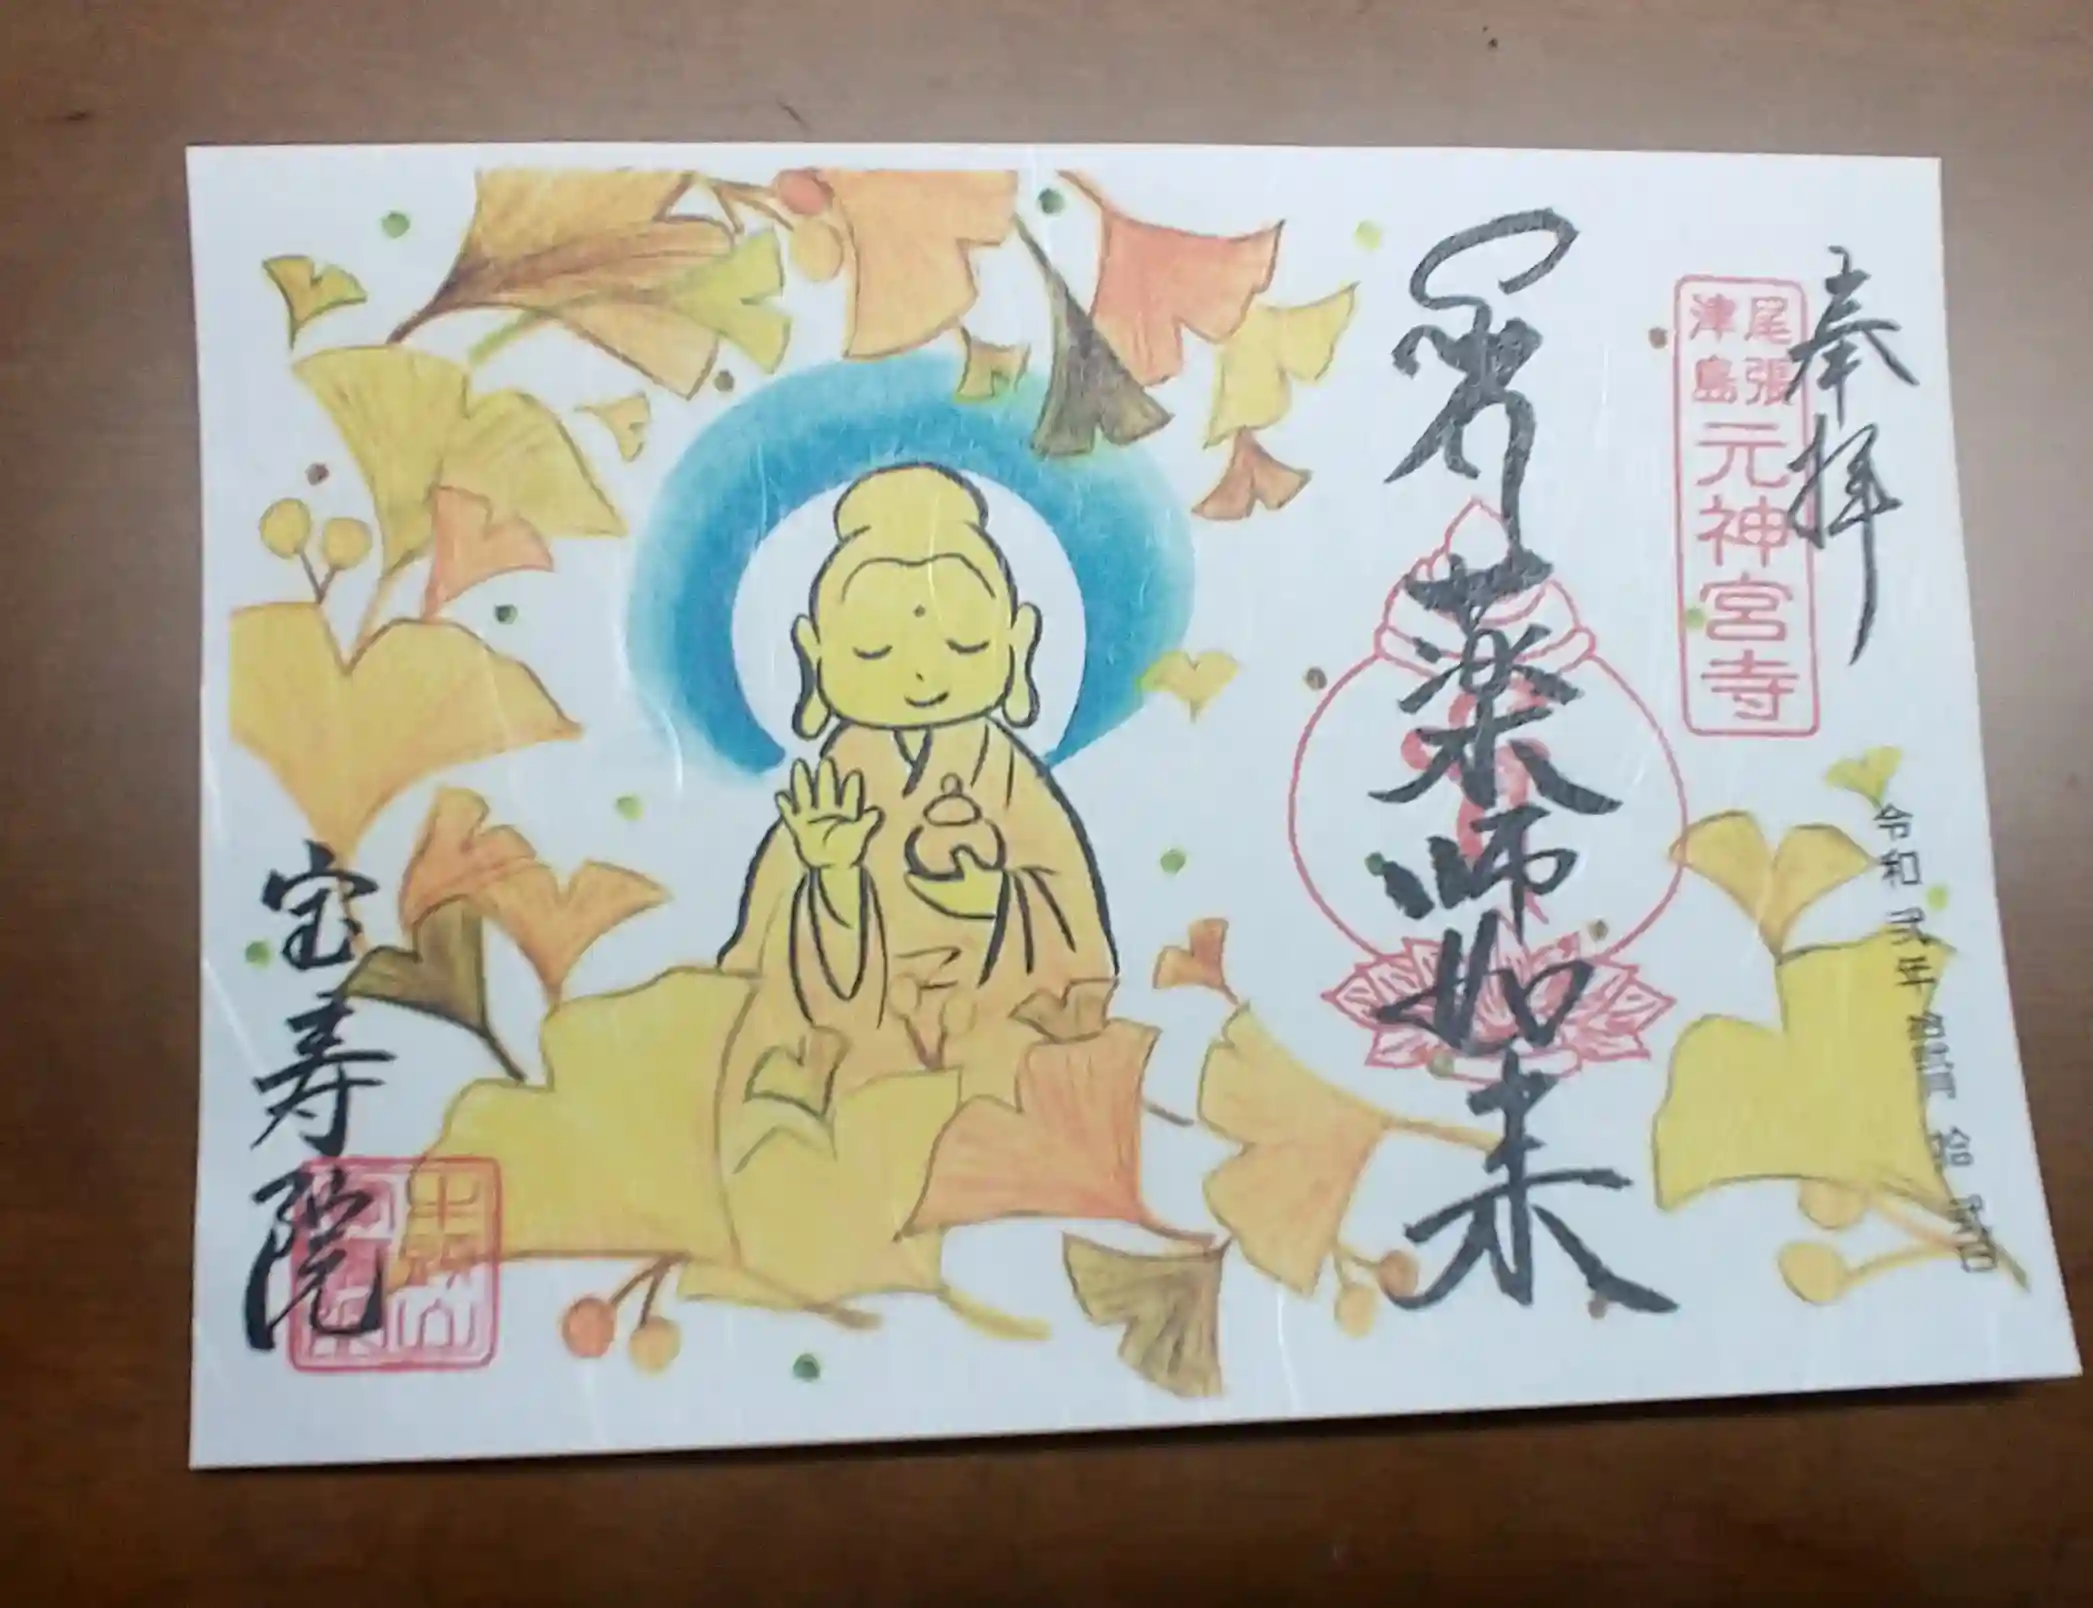 奉拝
尾張
津島
元神宮寺
令和弐年
薬師如来
宝寿院